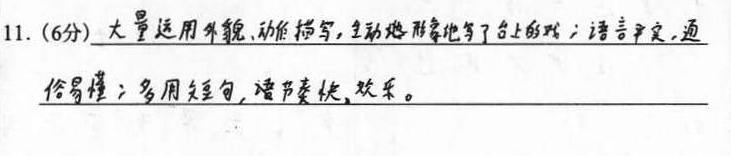 11. (6分) 大量运用外貌、动作描写，生动地形象地写了台上的戏；语言平实，通
俗易懂；多用短句，语节奏快、欢乐。